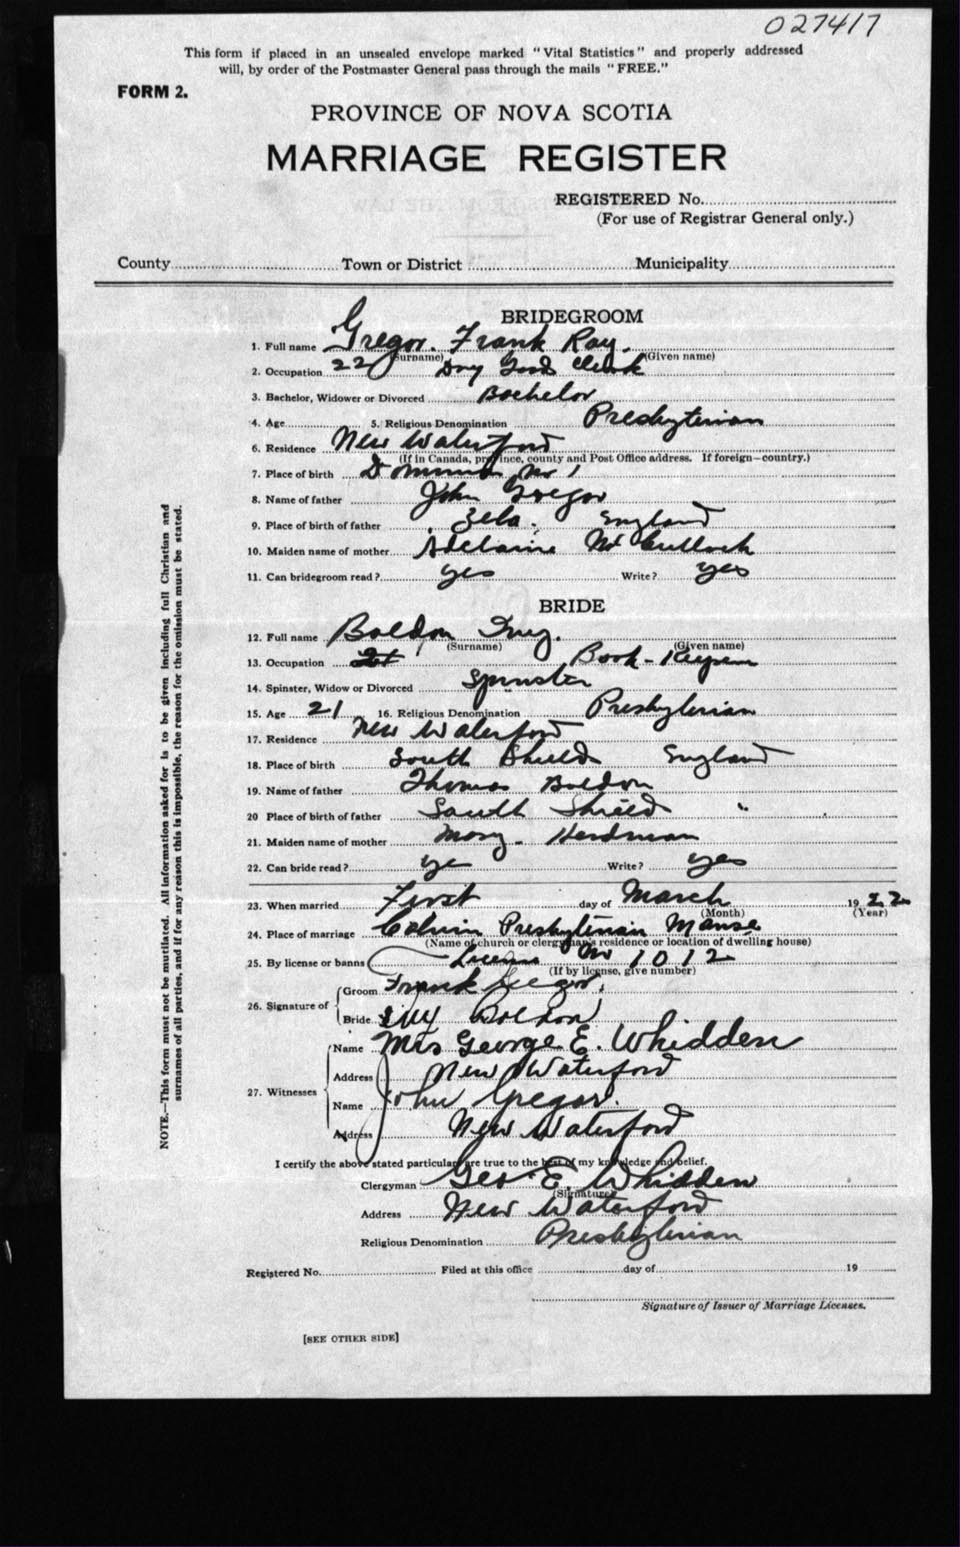 027417
This form if placed in an unsealed envelope marked "Vital Statistics" and properly addressed
will, by order of the Postmaster General pass through the mails "FREE."
FORM 2.
PROVINCE OF NOVA SCOTIA
MARRIAGE REGISTER
REGISTERED No.
(For use of Registrar General only.)
County Town or District Municipality
BRIDEGROOM
1. Full name Gregor. Frank Ray.
(Surname) (Given name)
2. Occupation 22 Dry Goods Clerk
3. Bachelor, Widower or Divorced Bachelor
4. Age 5. Religious Denomination Presbyterian
6. Residence New Waterford
(If in Canada, province, county and Post Office address. If foreign—country.)
7. Place of birth Dominion No 1
8. Name of father John Gregor
9. Place of birth of father England
10. Maiden name of mother Mc Cullock
11. Can bridegroom read? yes Write? yes
BRIDE
12. Full name Boldon Ivy.
(Surname) (Given name)
13. Occupation Book-Keeper
14. Spinster, Widow or Divorced Spinster
15. Age 21 16. Religious Denomination Presbyterian
17. Residence New Waterford
18. Place of birth South Shield England
19. Name of father Thomas Boldon
20 Place of birth of father South Shield "
21. Maiden name of mother Mary Herdman
22. Can bride read? yes Write? yes
23. When married First day of March 1922
(Month) (Year)
24. Place of marriage Calvin Presbyterian Manse
(Name of church or clergyman's residence or location of dwelling house)
25. By license or banns License No 1012
(If by license, give number)
26. Signature of Groom Frank Gregor.
Bride Ivy Boldon
27. Witnesses Name Mrs George E. Whidden
Address New Waterford
Name John Gregor.
Address New Waterford
I certify the above stated particulars are true to the best of my knowledge and belief.
Clergyman Geo E. Whidden
(Signature)
Address New Waterford
Religious Denomination Presbyterian
Registered No. Filed at this office day of 19
Signature of Issuer of Marriage Licenses.
[SEE OTHER SIDE]
NOTE.—This form must not be mutilated. All information asked for is to be given including full Christian and
surnames of all parties, and if for any reason this is impossible, the reason for the omission must be stated.